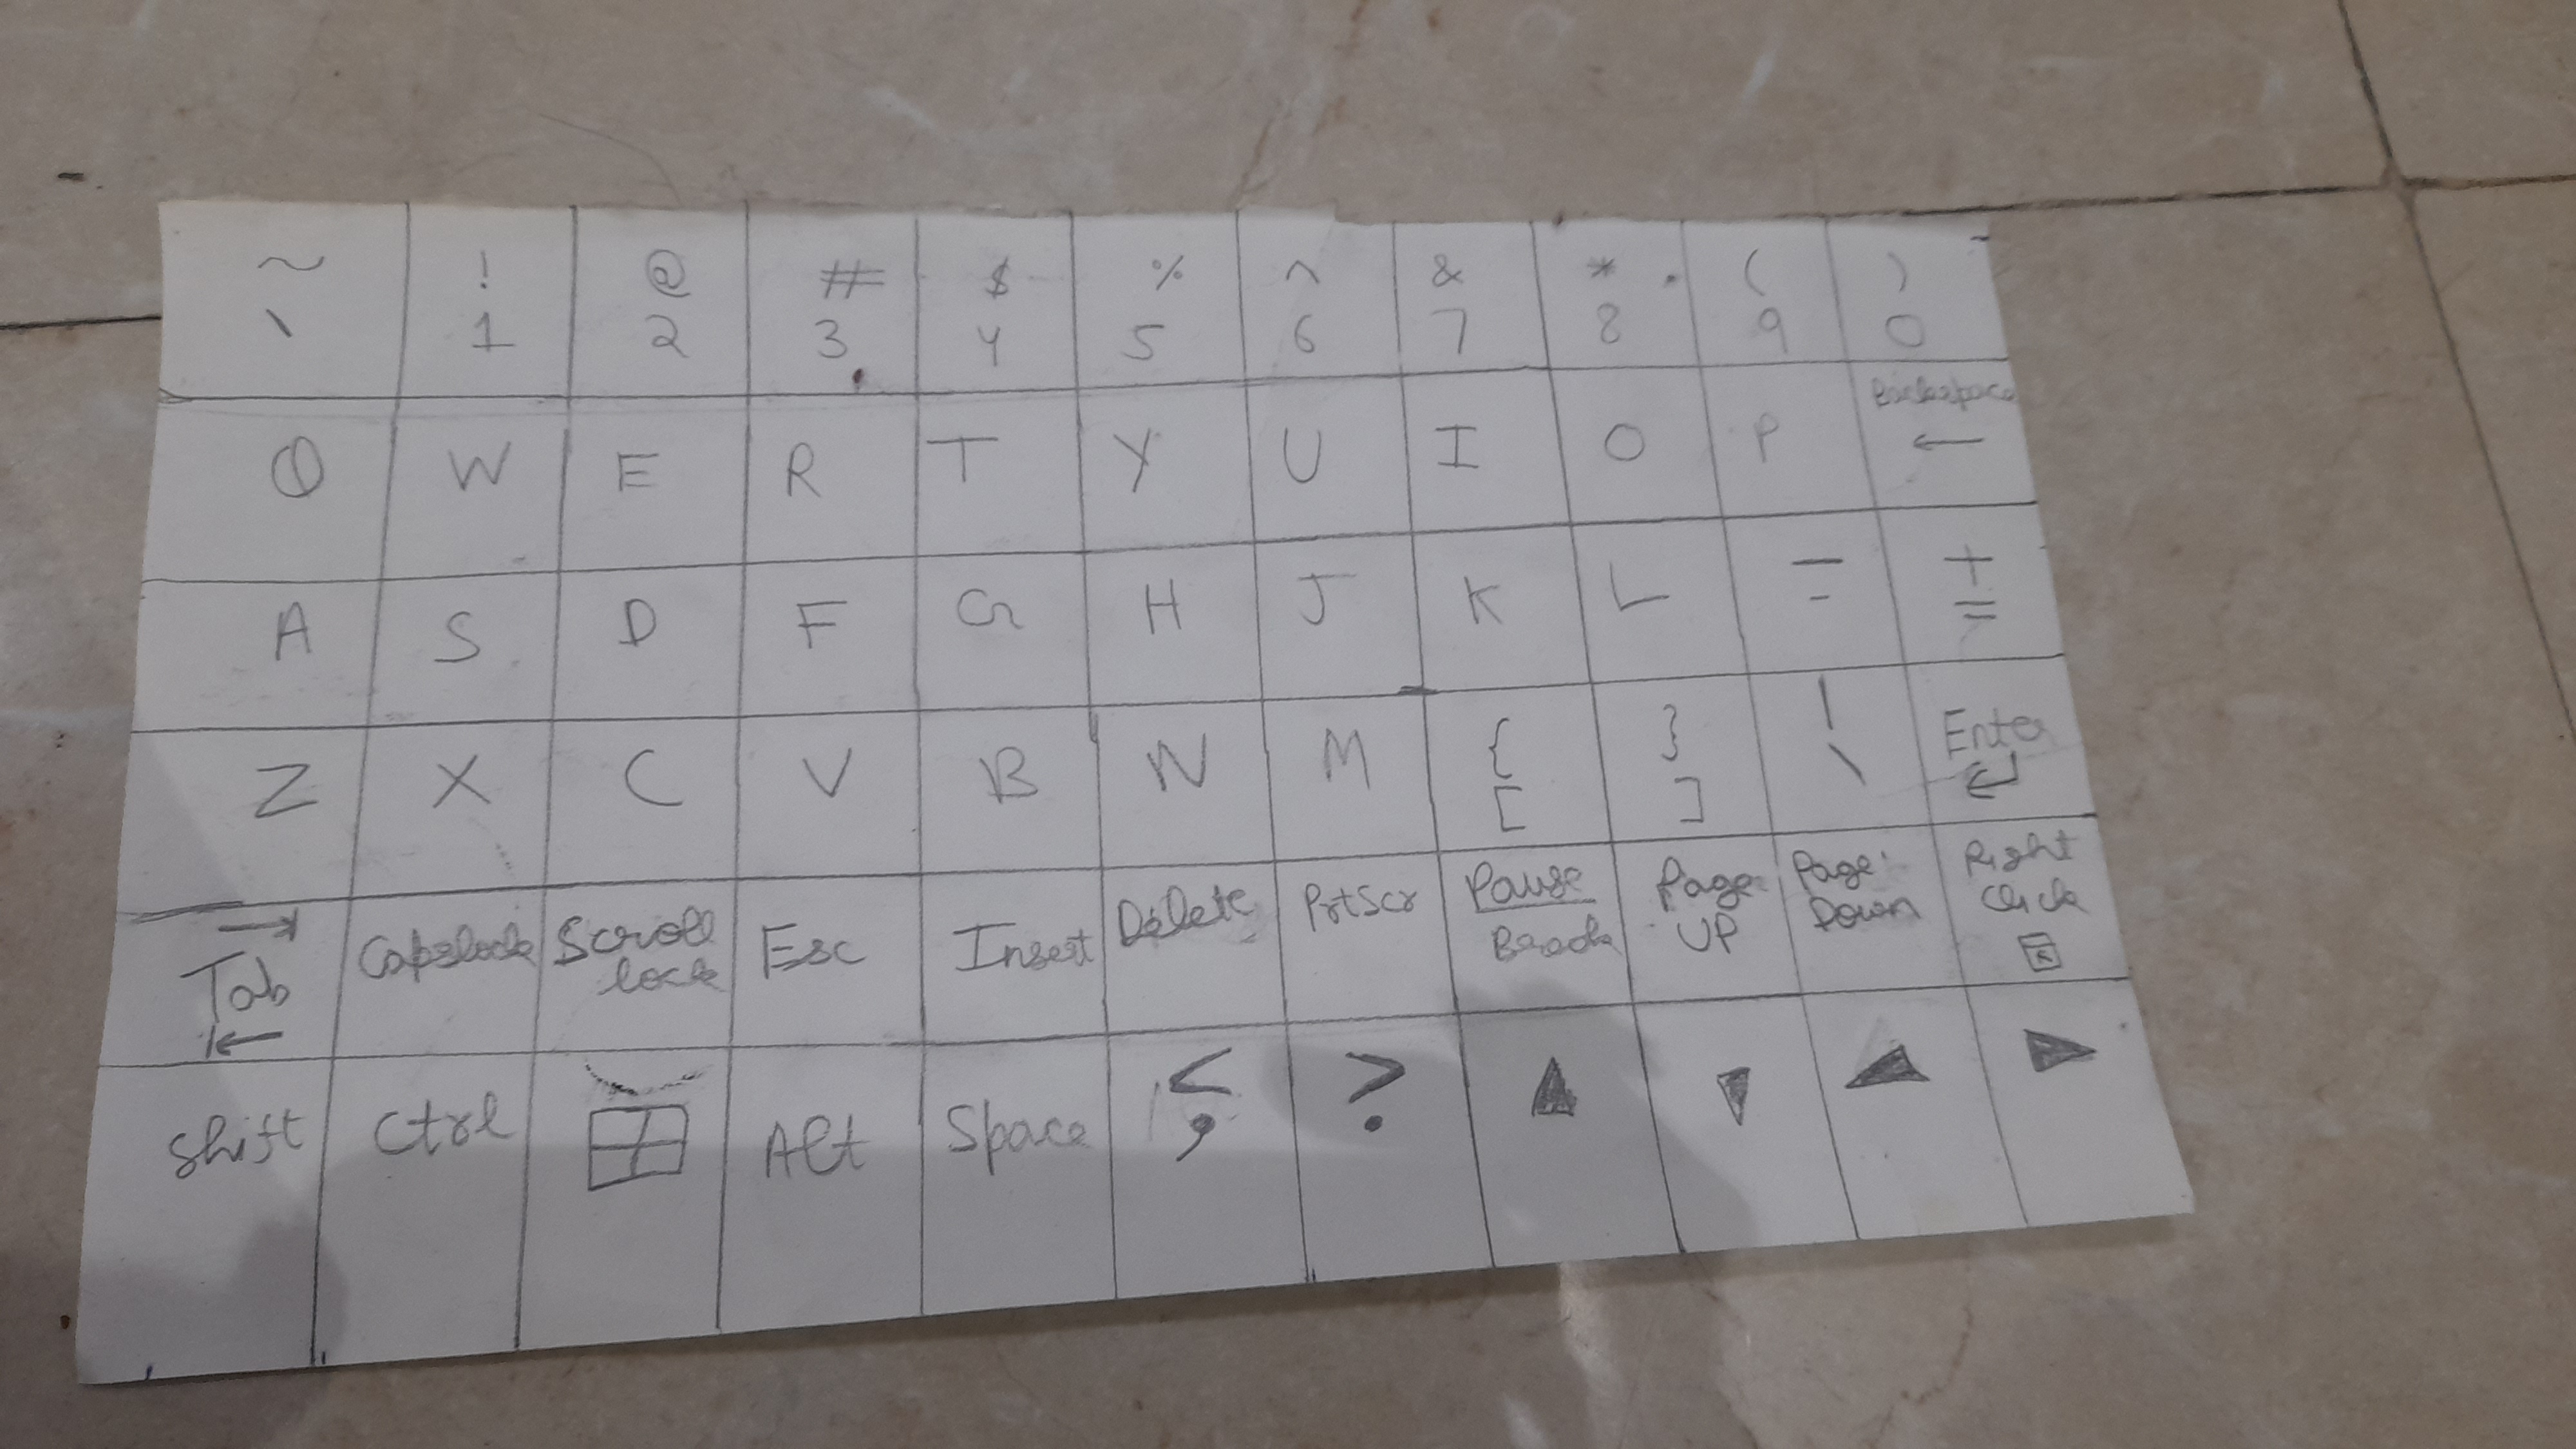 ~ ! @ # $ % ^ & * ( )
` 1 2 3 4 5 6 7 8 9 0
Q W E R T Y U I O P Backspace ←
A S D F G H J K L _ - + =
Z X C V B N M { [ } ] | \ Enter ↵
→ Tab ← Capslock Scroll lock Esc Insert Delete PrtScr Pause Break Page UP Page Down Right Click
Shift Ctrl Alt Space < , > . ▲ ▼ ▲ ▼